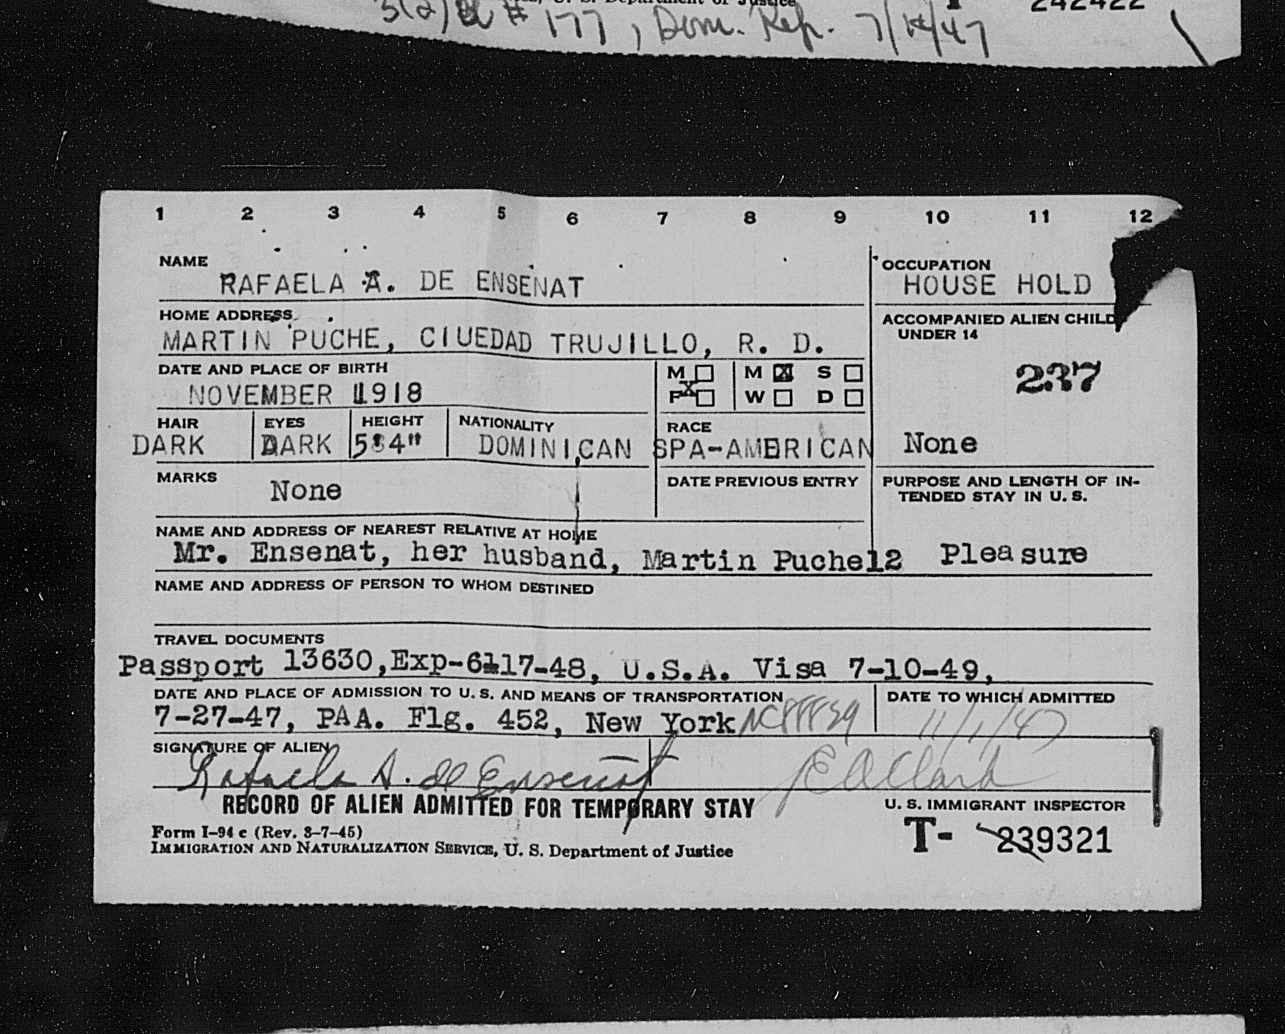 3(2) # 177, Dom. Rep. 7/14/47
242422
1 2 3 4 5 6 7 8 9 10 11 12
NAME
RAFAELA A. DE ENSENAT
OCCUPATION
HOUSE HOLD
HOME ADDRESS
MARTIN PUCHE, CIUEDAD TRUJILLO, R. D.
ACCOMPANIED ALIEN CHILD
UNDER 14
237
None
DATE AND PLACE OF BIRTH
NOVEMBER 1918
M F X
M X S
W D
HAIR
DARK
EYES
DARK
HEIGHT
5:4"
NATIONALITY
DOMINICAN
RACE
SPA-AMERICAN
MARKS
None
DATE PREVIOUS ENTRY
PURPOSE AND LENGTH OF IN-
TENDED STAY IN U. S.
Pleasure
NAME AND ADDRESS OF NEAREST RELATIVE AT HOME
Mr. Ensenat, her husband, Martin Puche12
NAME AND ADDRESS OF PERSON TO WHOM DESTINED
TRAVEL DOCUMENTS
Passport 13630,Exp-6-17-48, U.S.A. Visa 7-10-49,
DATE AND PLACE OF ADMISSION TO U. S. AND MEANS OF TRANSPORTATION
7-27-47, PAA. Flg. 452, New York
DATE TO WHICH ADMITTED
11/1/47
SIGNATURE OF ALIEN
Rafaela A. de Enseñat
E A Clark
RECORD OF ALIEN ADMITTED FOR TEMPORARY STAY
U. S. IMMIGRANT INSPECTOR
Form I-94 c (Rev. 8-7-45)
IMMIGRATION AND NATURALIZATION SERVICE, U. S. Department of Justice
T- 239321